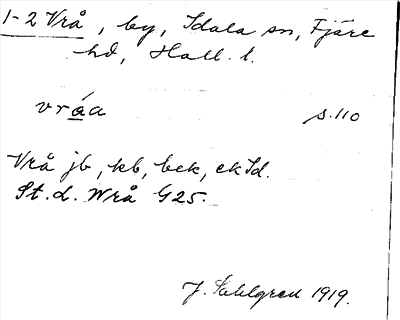 1-2 Vrå, by, Idala sn, Fjäre
hd, Hall. l.
vráa s. 110
Vrå jb, kb, bek, ek Id.
St. d. Wrå G25.
J. Sahlgren 1919.